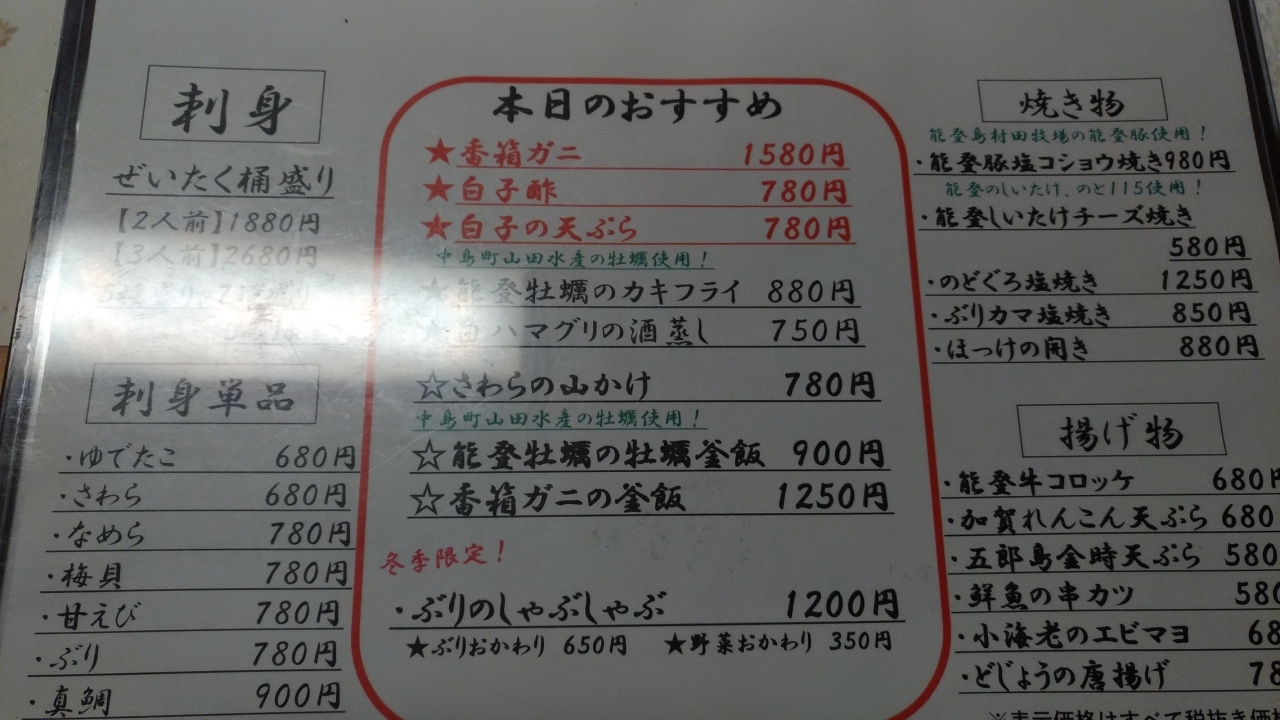 刺身
ぜいたく桶盛り
【2人前】1880円
【3人前】2680円
刺身単品
・ゆでたこ 680円
・さわら 680円
・なめら 780円
・梅貝 780円
・甘えび 780円
・ぶり 780円
・真鯛 900円
本日のおすすめ
★香箱ガニ 1580円
★白子酢 780円
★白子の天ぷら 780円
中島町山田水産の牡蠣使用！
★能登牡蠣のカキフライ 880円
★白ハマグリの酒蒸し 750円
☆さわらの山かけ 780円
中島町山田水産の牡蠣使用！
☆能登牡蠣の牡蠣釜飯 900円
☆香箱ガニの釜飯 1250円
冬季限定！
・ぶりのしゃぶしゃぶ 1200円
★ぶりおかわり 650円 ★野菜おかわり 350円
焼き物
能登島村田牧場の能登豚使用！
・能登豚塩コショウ焼き980円
能登のしいたけ、のと115使用！
・能登しいたけチーズ焼き
580円
・のどぐろ塩焼き 1250円
・ぶりカマ塩焼き 850円
・ほっけの開き 880円
揚げ物
・能登牛コロッケ 680円
・加賀れんこん天ぷら 680
・五郎島金時天ぷら 580
・鮮魚の串カツ 580
・小海老のエビマヨ 68
・どじょうの唐揚げ 78
※表示価格はすべて税抜き価